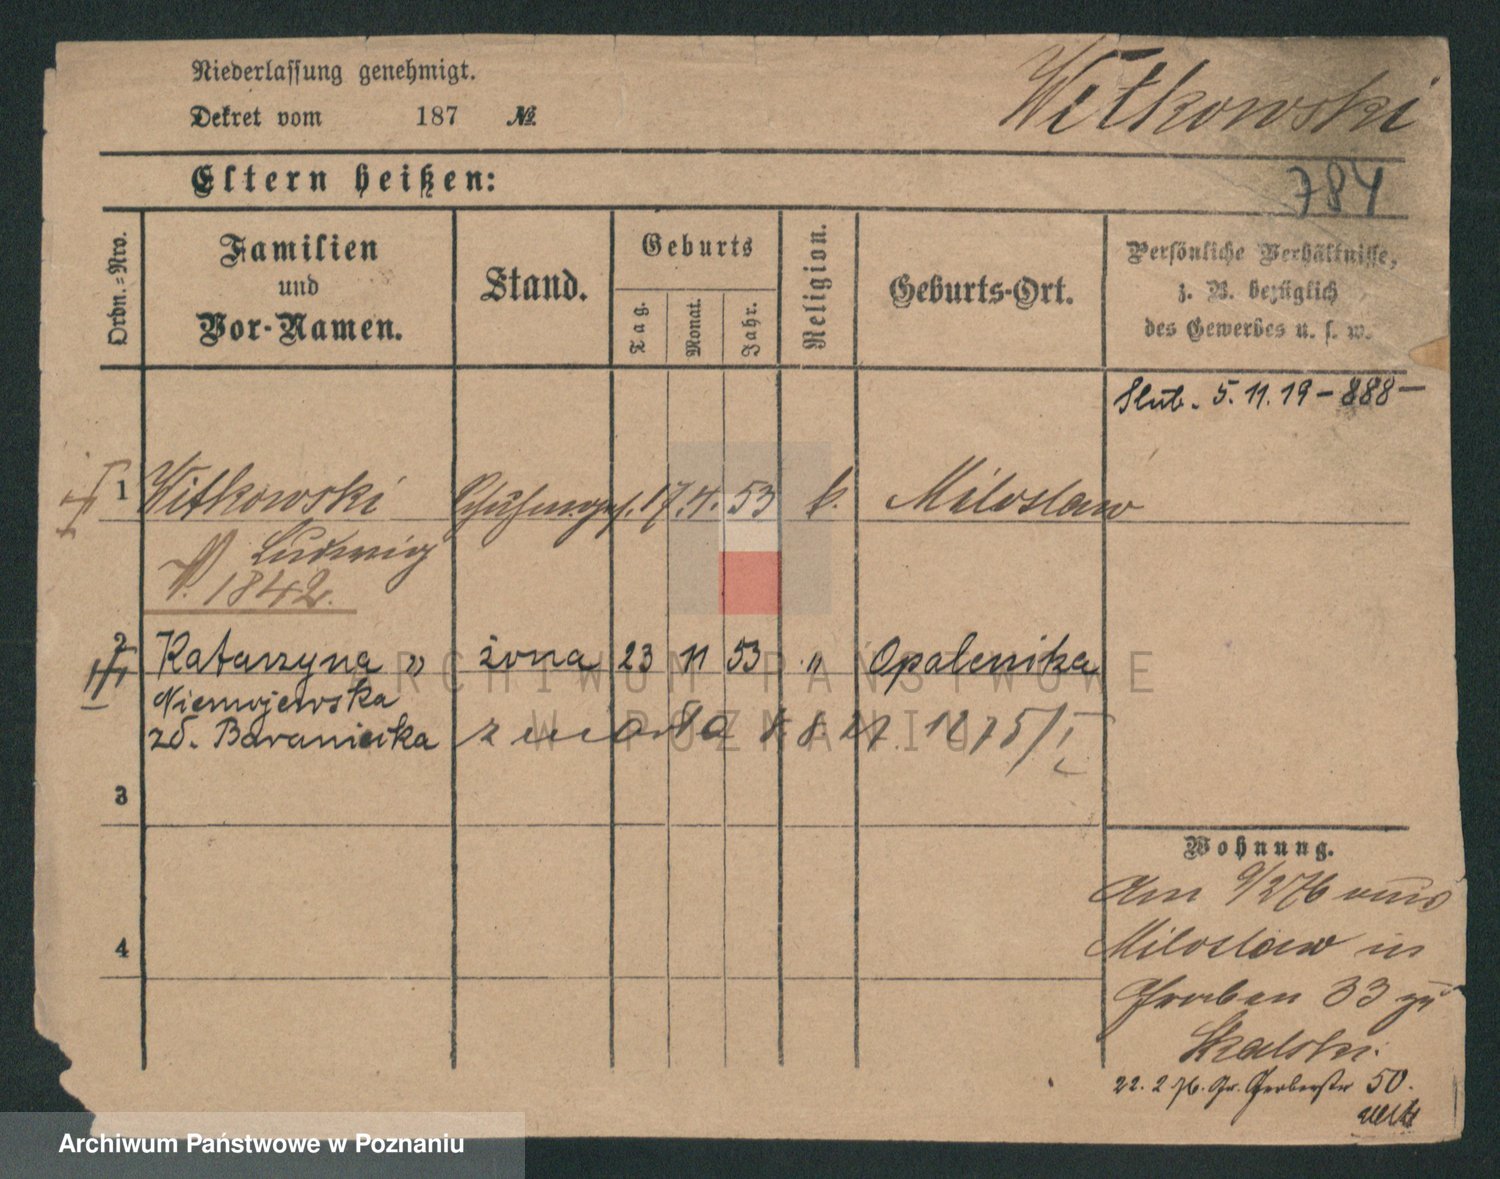 Niederlassung genehmigt.
Dekret vom 187 №
Witkowski
Eltern heißen:
784
Ordn.-Nro.
Familien und Vor-Namen.
Stand.
Geburts
Tag.
Monat.
Jahr.
Religion.
Geburts-Ort.
Persönliche Verhältnisse,
z. B. bezüglich
des Gewerbes u. s. w.
Slub. 5.11.19 – 888 –
1 Witkowski 17. 53 k. Miloslaw
Ludwig
1842.
2 Katarzyna " żona 23 11 53 " Opalenika
Niemojewska
zd. Baranieika zmarła 8. 8. 27. 1275/I
3
4
Wohnung.
Am 9/2 76 aus
Miloslaw in
Graben 33 zu
Skalski.
22. 2 76. Gr. Gerberstr 50.
ARCHIWUM PAŃSTWOWE
W POZNANIU
Archiwum Państwowe w Poznaniu